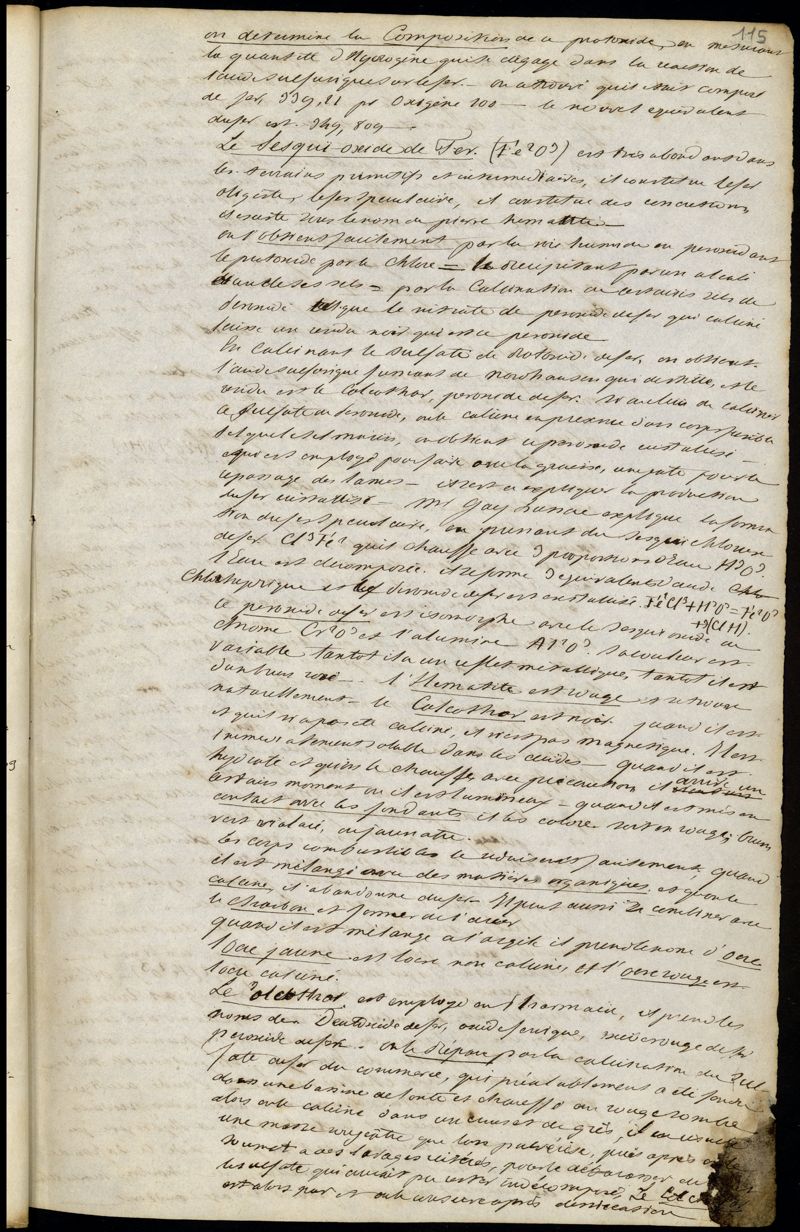 115
on determine la Composition de ce protoxide, en mesurant
la quantité d'Hydrogène qui se dégage dans la reaction de
l'acide sulfurique sur le fer. — on a trouvé qu'il était composé
de fer, 339,21 pr Oxigène 100 — le nouvel equivalent
du fer est 349,809 —
Le Sesqui-oxide de Fer. (Fe²O³) est très abondant dans
les terrains primitifs et intermediaires, il constitue le fer
oligiste, le fer speculaire, il constitue des concretions,
et existe sous le nom de pierre hematite —
on l'obtient facilement par la voie humide en peroxidant
le protoxide par le chlore = le précipitant par un alcali
= par la Calcination de certains sels de
tel que le nitrate de peroxide de fer qui calciné
laisse un residu noir qui est ce peroxide
En Calcinant le sulfate de Protoxide de fer, on obtient
l'acide sulfurique fumant de Nordhausen qui distille, et le
residu est le Colcothar, peroxide de fer. Si au lieu de calciner
ce sulfate de on le calcine en presence d'un corps fusible
tel que le sel marin, on obtient ce peroxide cristallisé —
qui est employé pour faire avec la graisse, une pate pour le
repassage des lames — et sert a expliquer la production
du fer cristallisé — Mr Gay Lussac explique la forma
tion du fer speculaire, en prenant du sesqui chlorure
de fer Cl³Fe² qu'il chauffe avec 3 proportions d'Eau H³O³.
l'Eau est decomposée. il se forme 3 equivalents d'acide Chlo
Chlorhydrique et le de fer est cristallisé. Fe²Cl³+H³O³=Fe²O³
+3(ClH).
le peroxide de fer est isomorphe avec le sesqui oxide de
chrome Cr²O³ et l'alumine Al²O³. Sa couleur est
variable tantot il a un reflet métallique, tantot il est
d'un brun rouge — l'Hematite est rouge et se trouve
naturellement — le Colcothar est noir quand il est
et qu'il n'a pas été calciné, il n'est pas magnetique. Il est
solable dans les acides — quand il est
hydraté et qu'on le chauffe avec precaution, il arrive un
certains moment ou il est lumineux — quand il est mis en
contact avec les fondants il les colore soit en rouge, brun,
vert violacé, ou jaunatre.
les corps combustibles le réduisent facilement, quand
il est mélangé avec des matières organiques, et qu'on le
calcine, il abandonne du fer. Il peut aussi se combiner avec
le charbon et former de l'acier
quand il est mélangé a l'argile il prend le nom d'ocre
l'Ocre jaune est l'ocre non calciné, et l'ocre rouge est
l'ocre calciné.
Le Colcothar est employé en Pharmacie, et prend les
noms de Deutoxide de fer, oxide ferrique, oxide rouge de fer
peroxide de fer. on le prépare par la calcination du Sul
fate de fer du commerce, qui préalablement a été fondu
dans une bassine de fonte et chauffé au rouge sombre
alors on le calcine dans un creuset de grès, il en résulte
une masse rougeatre que l'on pulvérise, puis après on le
soumet a des lavages réiterés, pour le débarasser de
le sulfate qui aurait pu rester indécomposé, Le Colc
est alors pur et on le conserve après dessiccation